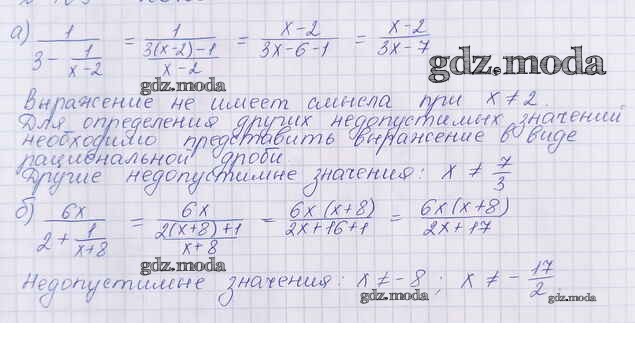 а) 1/(3 - 1/(x-2)) = 1/((3(x-2)-1)/(x-2)) = (x-2)/(3x-6-1) = (x-2)/(3x-7)
gdz.moda
gdz.moda
Выражение не имеет смысла при x ≠ 2.
Для определения других недопустимых значений
необходимо представить выражение в виде
рациональной дроби.
Другие недопустимые значения: x ≠ 7/3
б) 6x/(2 + 1/(x+8)) = 6x/((2(x+8)+1)/(x+8)) = 6x(x+8)/(2x+16+1) = 6x(x+8)/(2x+17)
gdz.moda
Недопустимые значения: x ≠ -8; x ≠ -17/2
gdz.moda
gdz.moda